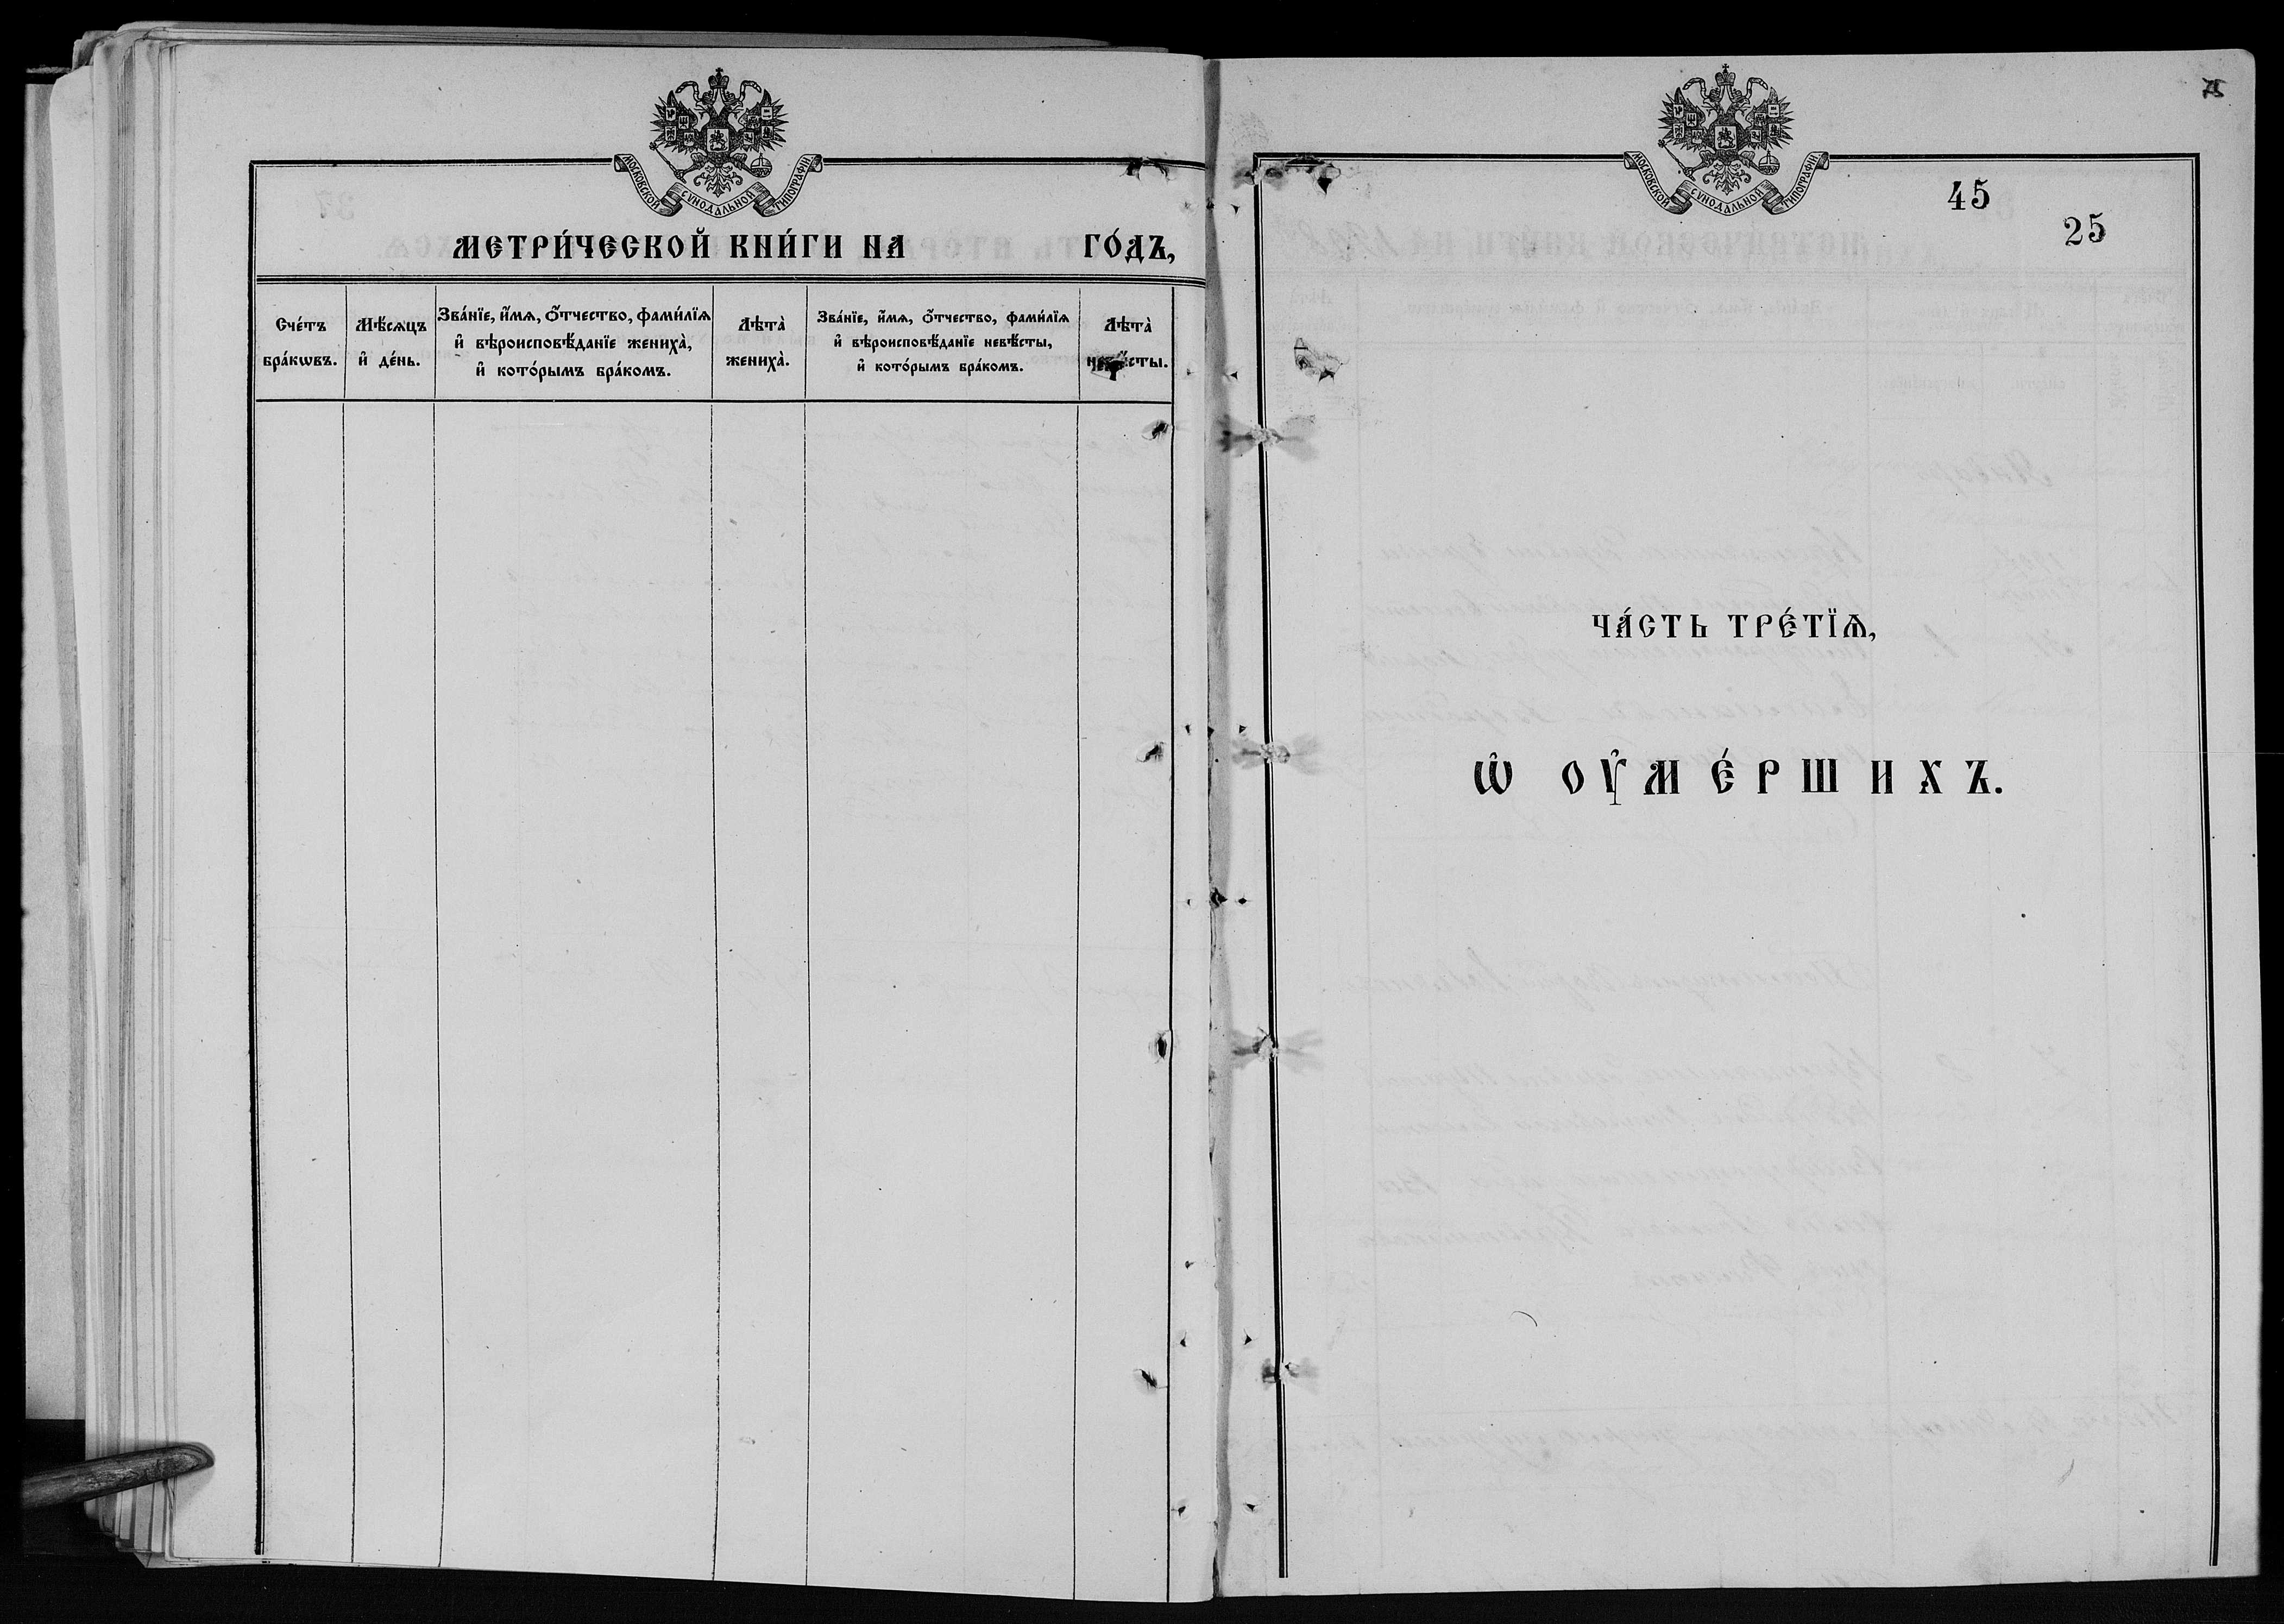 МОСКОВСКОЙ СѴНОДАЛЬНОЙ ТИПОГРАФІИ
МЕТРИ́ЧЕСКОЙ КНИ́ГИ НА ГО́ДЪ,
Сче́тъ
бра́кѡвъ.
Мѣ́сѧцъ
и҆ де́нь.
Зва́нїе, и҆́мѧ, ѻ҆́тчество, фами́лїѧ
и҆ вѣроисповѣ́данїе жениха̀,
и҆ кото́рымъ бра́комъ.
Лѣта̀
жениха̀.
Зва́нїе, и҆́мѧ, ѻ҆́тчество, фами́лїѧ
и҆ вѣроисповѣ́данїе невѣ́сты,
и҆ кото́рымъ бра́комъ.
Лѣта̀
невѣ́сты.
МОСКОВСКОЙ СѴНОДАЛЬНОЙ ТИПОГРАФІИ
45
25
ЧА́СТЬ ТРЕ́ТЇѦ,
Ѡ҆ ОУ҆МЕ́РШИХЪ.